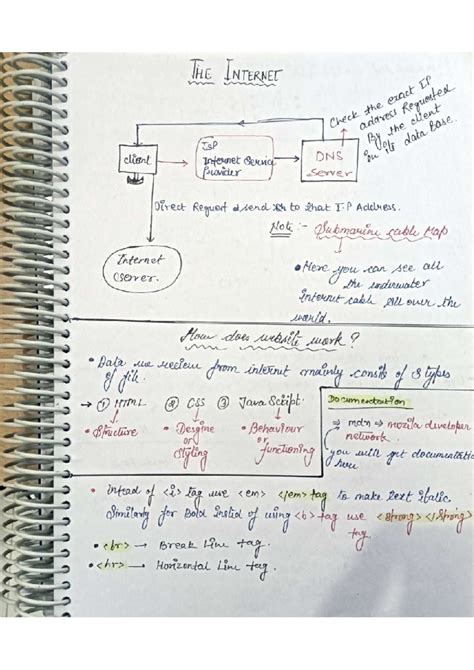 THE INTERNET
Check the exact IP
address Requested
By the client
in its data Base.
client
ISP
Internet Service
Provider
DNS
Server
Direct Request & send to that I.P Address.
Note :-
Submarine cable Map
Internet
Server.
• Here you can see all
the underwater
Internet cable all over the
world.
How does website work?
• Data we recieve from internet mainly consits of 3 types
of file.
→ ① HTML ② CSS ③ Java Script.
• Structure
• Desgine
or
Styling
• Behaviour
or
functioning
Documentation
⇒ mdn ⇒ mozila developer
network.
you will get documentatio
here.
• instead of <i> tag use <em> </em> tag to make text italic
Similarly for Bold insted of using <b> tag use <strong> </strong>
tag
• <br> → Break Line tag.
• <hr> → Horizontal Line tag.